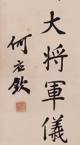 大將軍儀
何應欽